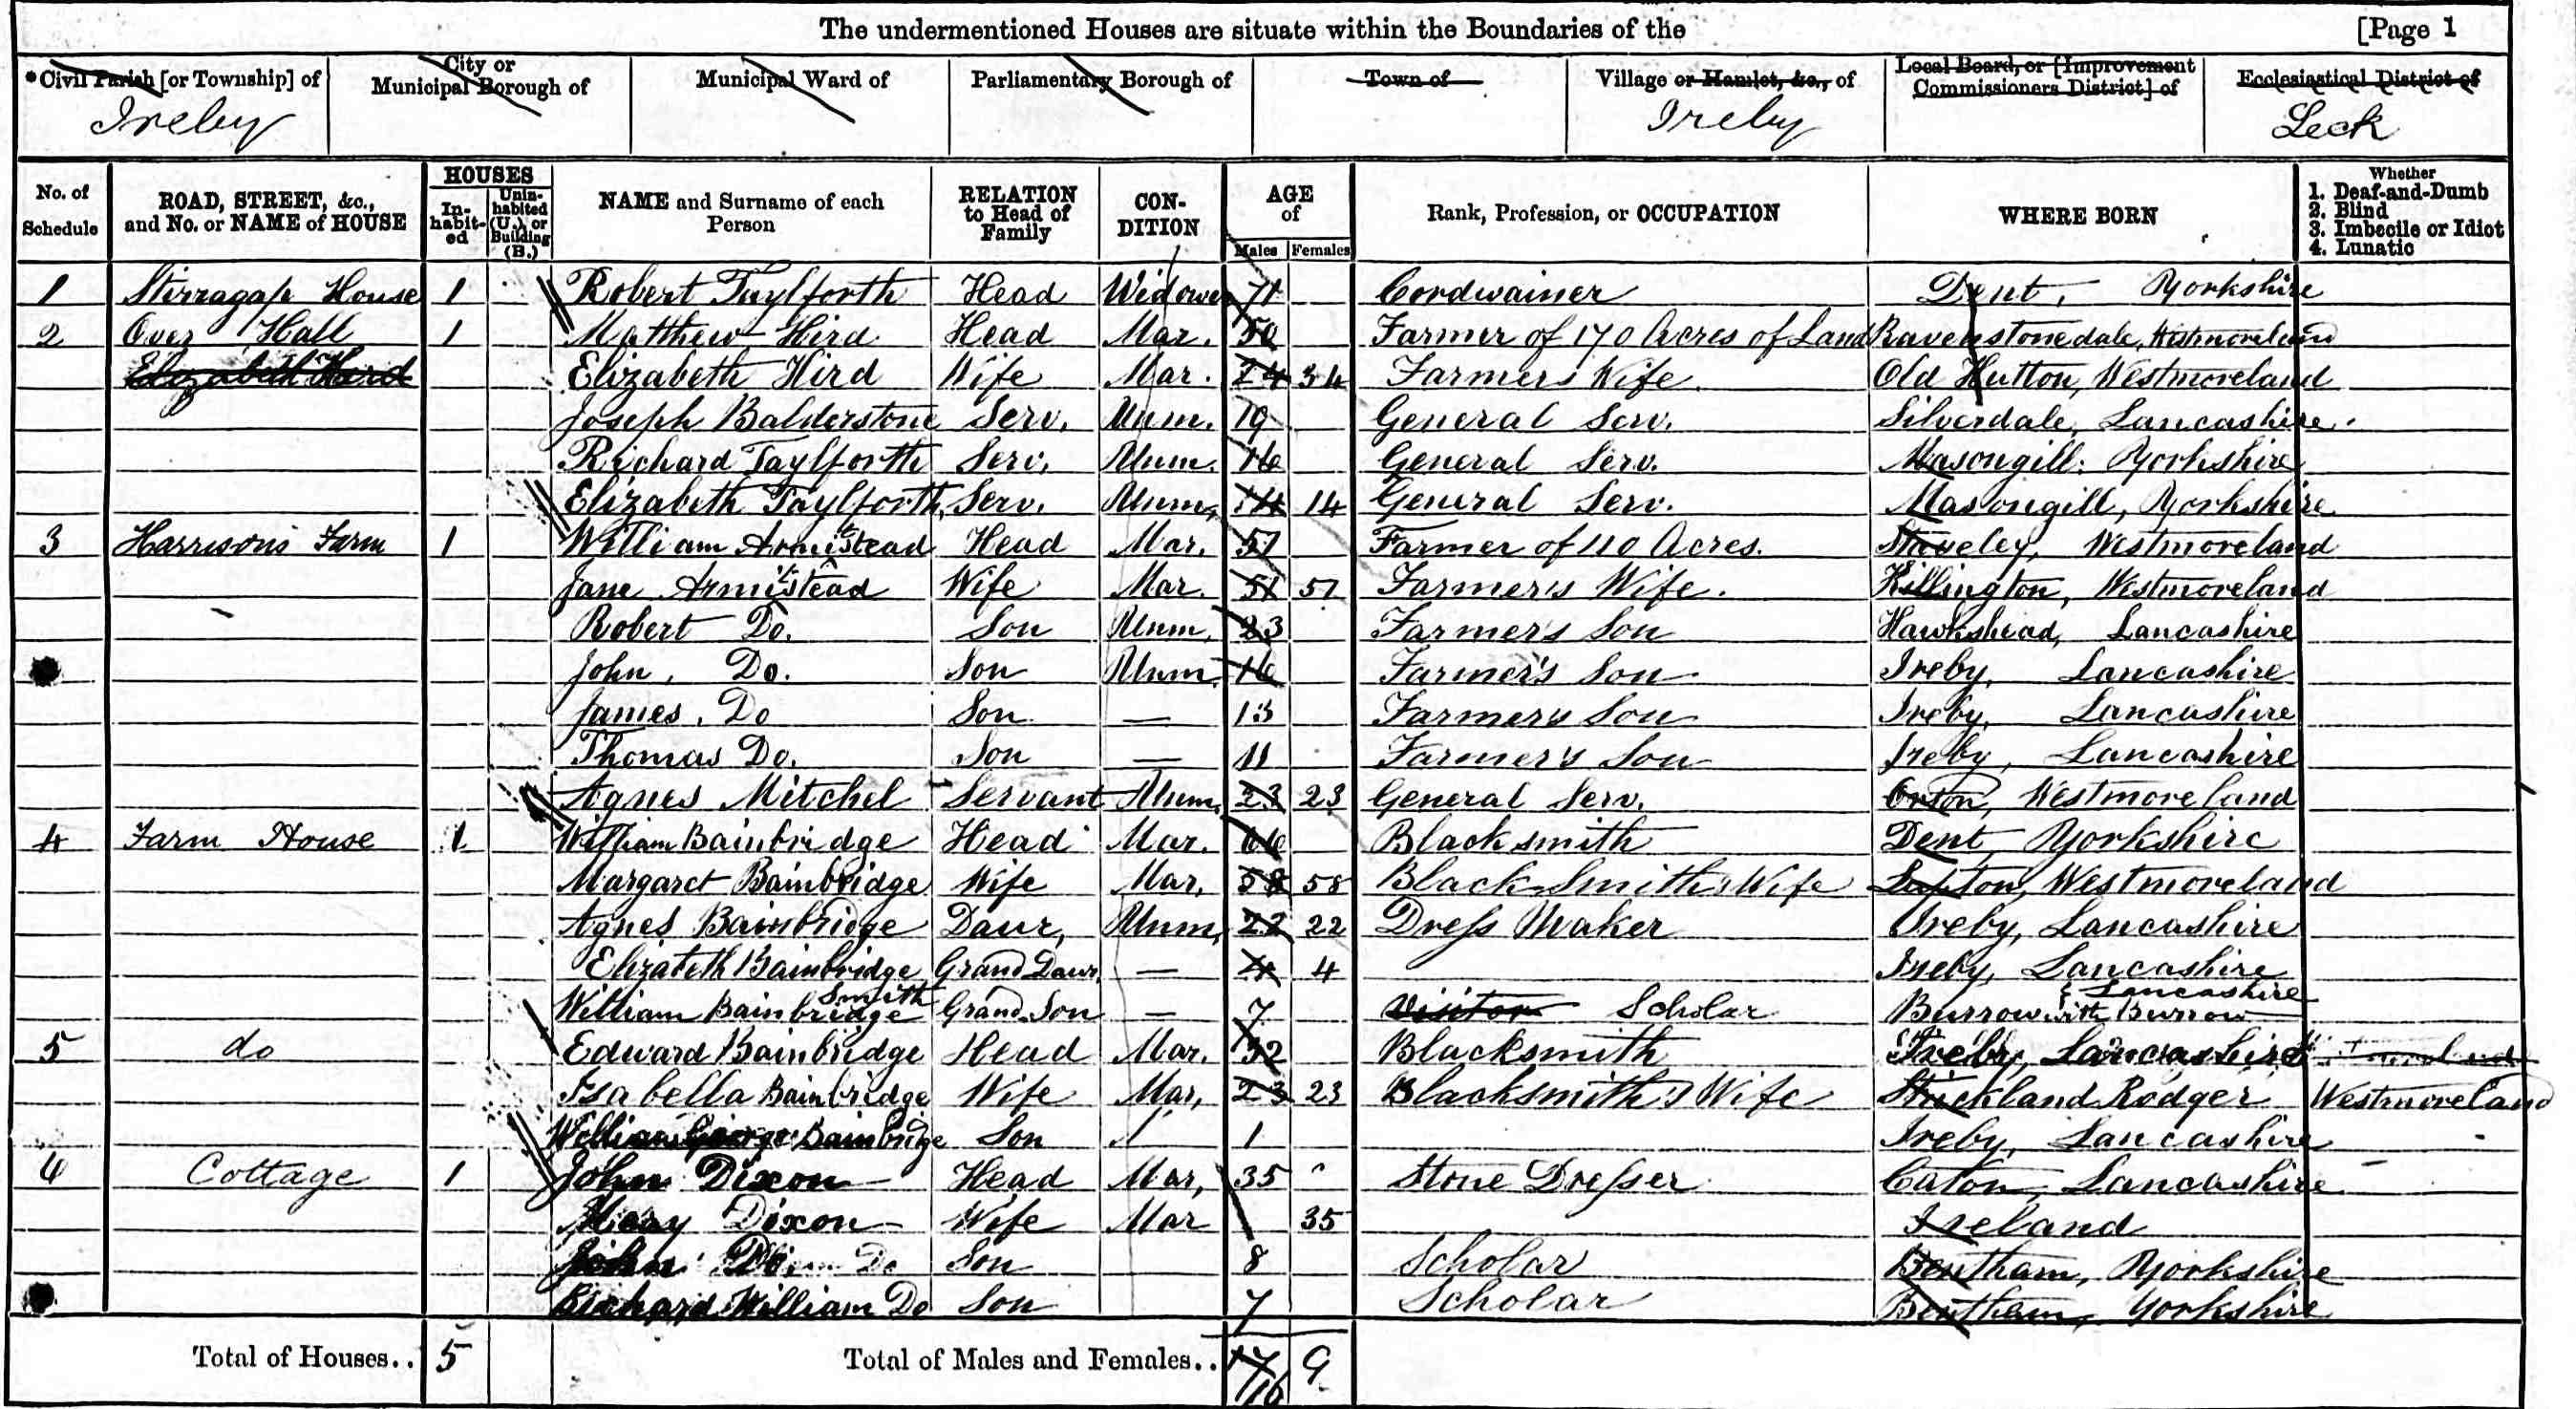 The undermentioned Houses are situate within the Boundaries of the [Page 1
*Civil Parish [or Township] of City or Municipal Borough of Municipal Ward of Parliamentary Borough of Town of Village or Hamlet, &c., of Local Board, or [Improvement Commissioners District] of Ecclesiastical District of
Ireby Ireby Leck
No. of Schedule ROAD, STREET, &c., and No. or NAME of HOUSE HOUSES In-habit-ed Unin-habited (U.), or Building (B.) NAME and Surname of each Person RELATION to Head of Family CON-DITION AGE of Males Females Rank, Profession, or OCCUPATION WHERE BORN Whether 1. Deaf-and-Dumb 2. Blind 3. Imbecile or Idiot 4. Lunatic
1 Stirragap House 1 Robert Taylforth Head Widower 71 Cordwainer Dent, Yorkshire
2 Over Hall 1 Matthew Hird Head Mar. 50 Farmer of 170 Acres of Land Ravenstonedale, Westmoreland
Elizabeth Hird Elizabeth Hird Wife Mar. 34 Farmers Wife Old Hutton, Westmoreland
Joseph Balderstone Serv. Unm. 19 General Serv. Silverdale, Lancashire.
Richard Taylforth Serv. Unm. 16 General Serv. Masongill. Yorkshire
Elizabeth Taylforth, Serv. Unm. 14 14 General Serv. Masongill, Yorkshire
3 Harrison's Farm 1 William Armistead Head Mar. 57 Farmer of 110 Acres. Staveley, Westmoreland
Jane Armistead Wife Mar. 51 51 Farmer's Wife. Killington, Westmoreland
Robert Do. Son Unm. 23 Farmer's Son Hawkshead, Lancashire
John, Do. Son Unm. 16 Farmer's Son Ireby, Lancashire
James, Do Son — 13 Farmer's Son Ireby, Lancashire
Thomas Do. Son — 11 Farmer's Son Ireby, Lancashire
Agnes Mitchel Servant Unm. 23 23 General Serv. Orton, Westmoreland
4 Farm House 1 William Bainbridge Head Mar. 66 Blacksmith Dent, Yorkshire
Margaret Bainbridge Wife Mar, 58 58 Black Smith's Wife Lupton, Westmoreland
Agnes Bainbridge Daur, Unm, 22 22 Dress Maker Ireby, Lancashire
Elizabeth Bainbridge Grand Daur. — 4 4 Ireby, Lancashire
William Bainbridge Smith Grand Son — 7 Visitor Scholar Burrow with Burrow Lancashire
5 do Edward Bainbridge Head Mar. 32 Blacksmith Ireby, Lancashire
Isabella Bainbridge Wife Mar, 23 23 Blacksmith's Wife Strickland Rodger Westmoreland
William George Bainbridge Son 1 Ireby, Lancashire
6 Cottage 1 John Dixon Head Mar, 35 Stone Dresser Caton, Lancashire
Mary Dixon Wife Mar 35 Ireland
John Do Son 8 Scholar Bentham, Yorkshire
Richard William Do Son 7 Scholar Bentham, Yorkshire
Total of Houses.. 5 Total of Males and Females.. 17 16 9